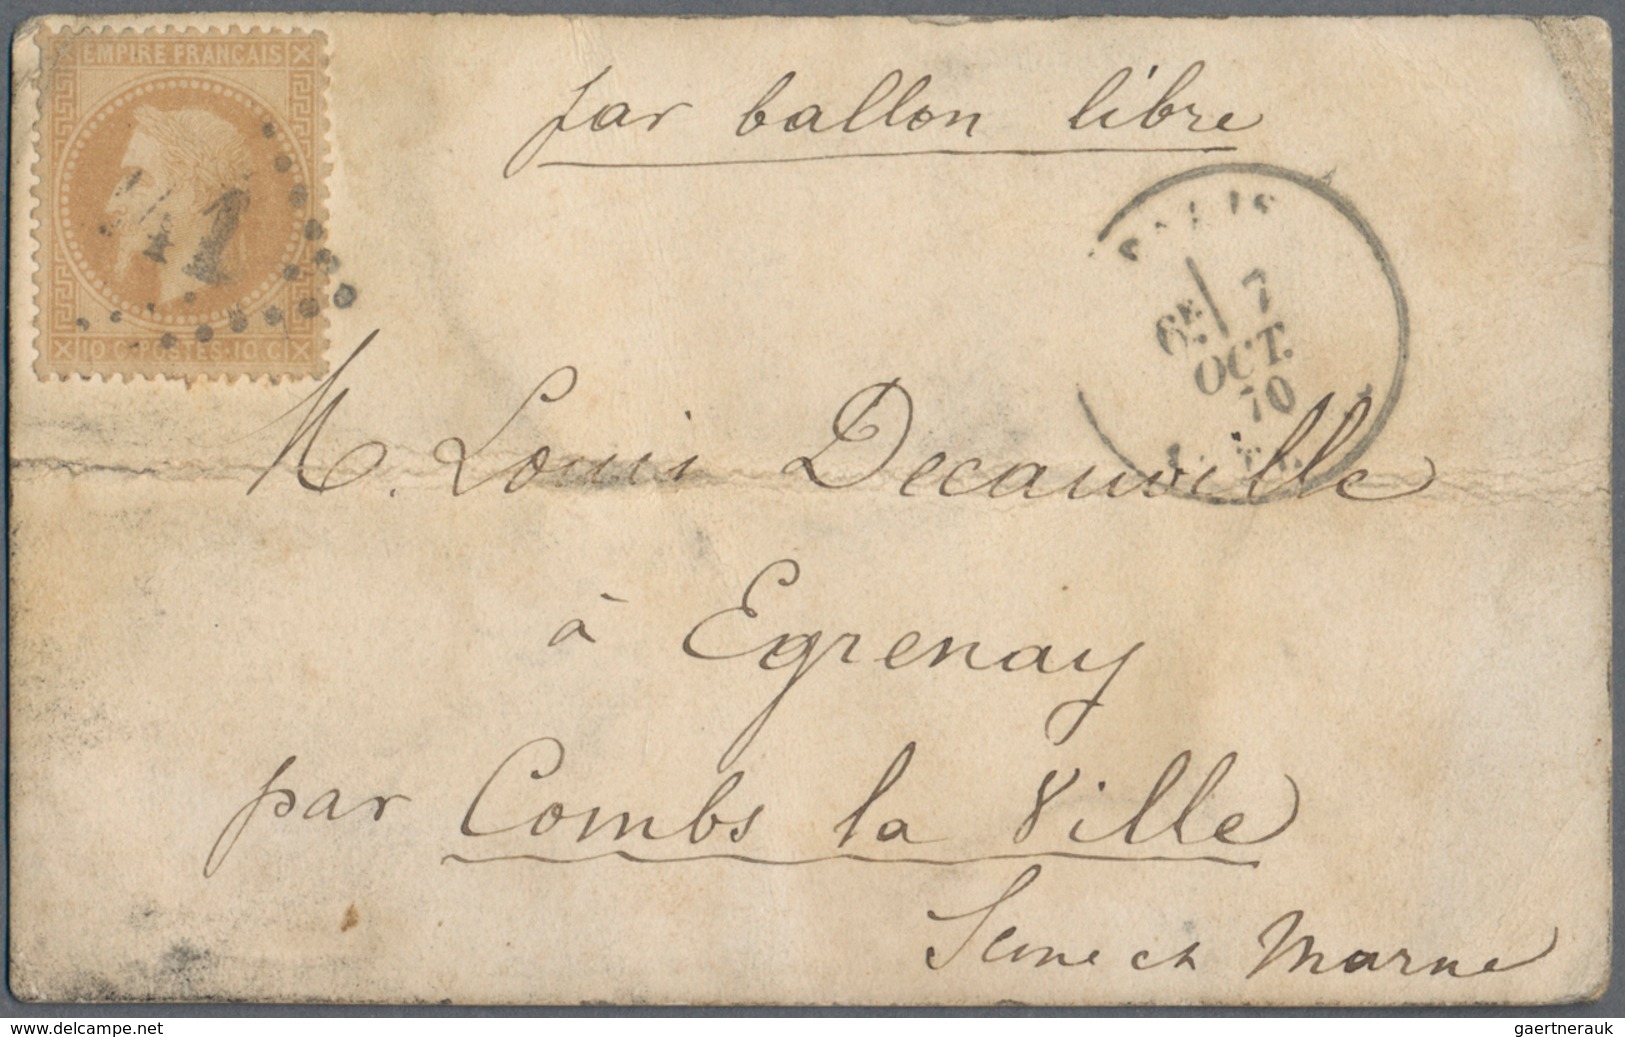 EMPIRE FRANÇAIS
10 C. POSTES. 10 C
par ballon libre
PARIS
6E 7
OCT.
70
M. Louis Decauville
à Egrenay
par Combs la Ville
Seine et Marne
www.delcampe.net
gaertnerauk